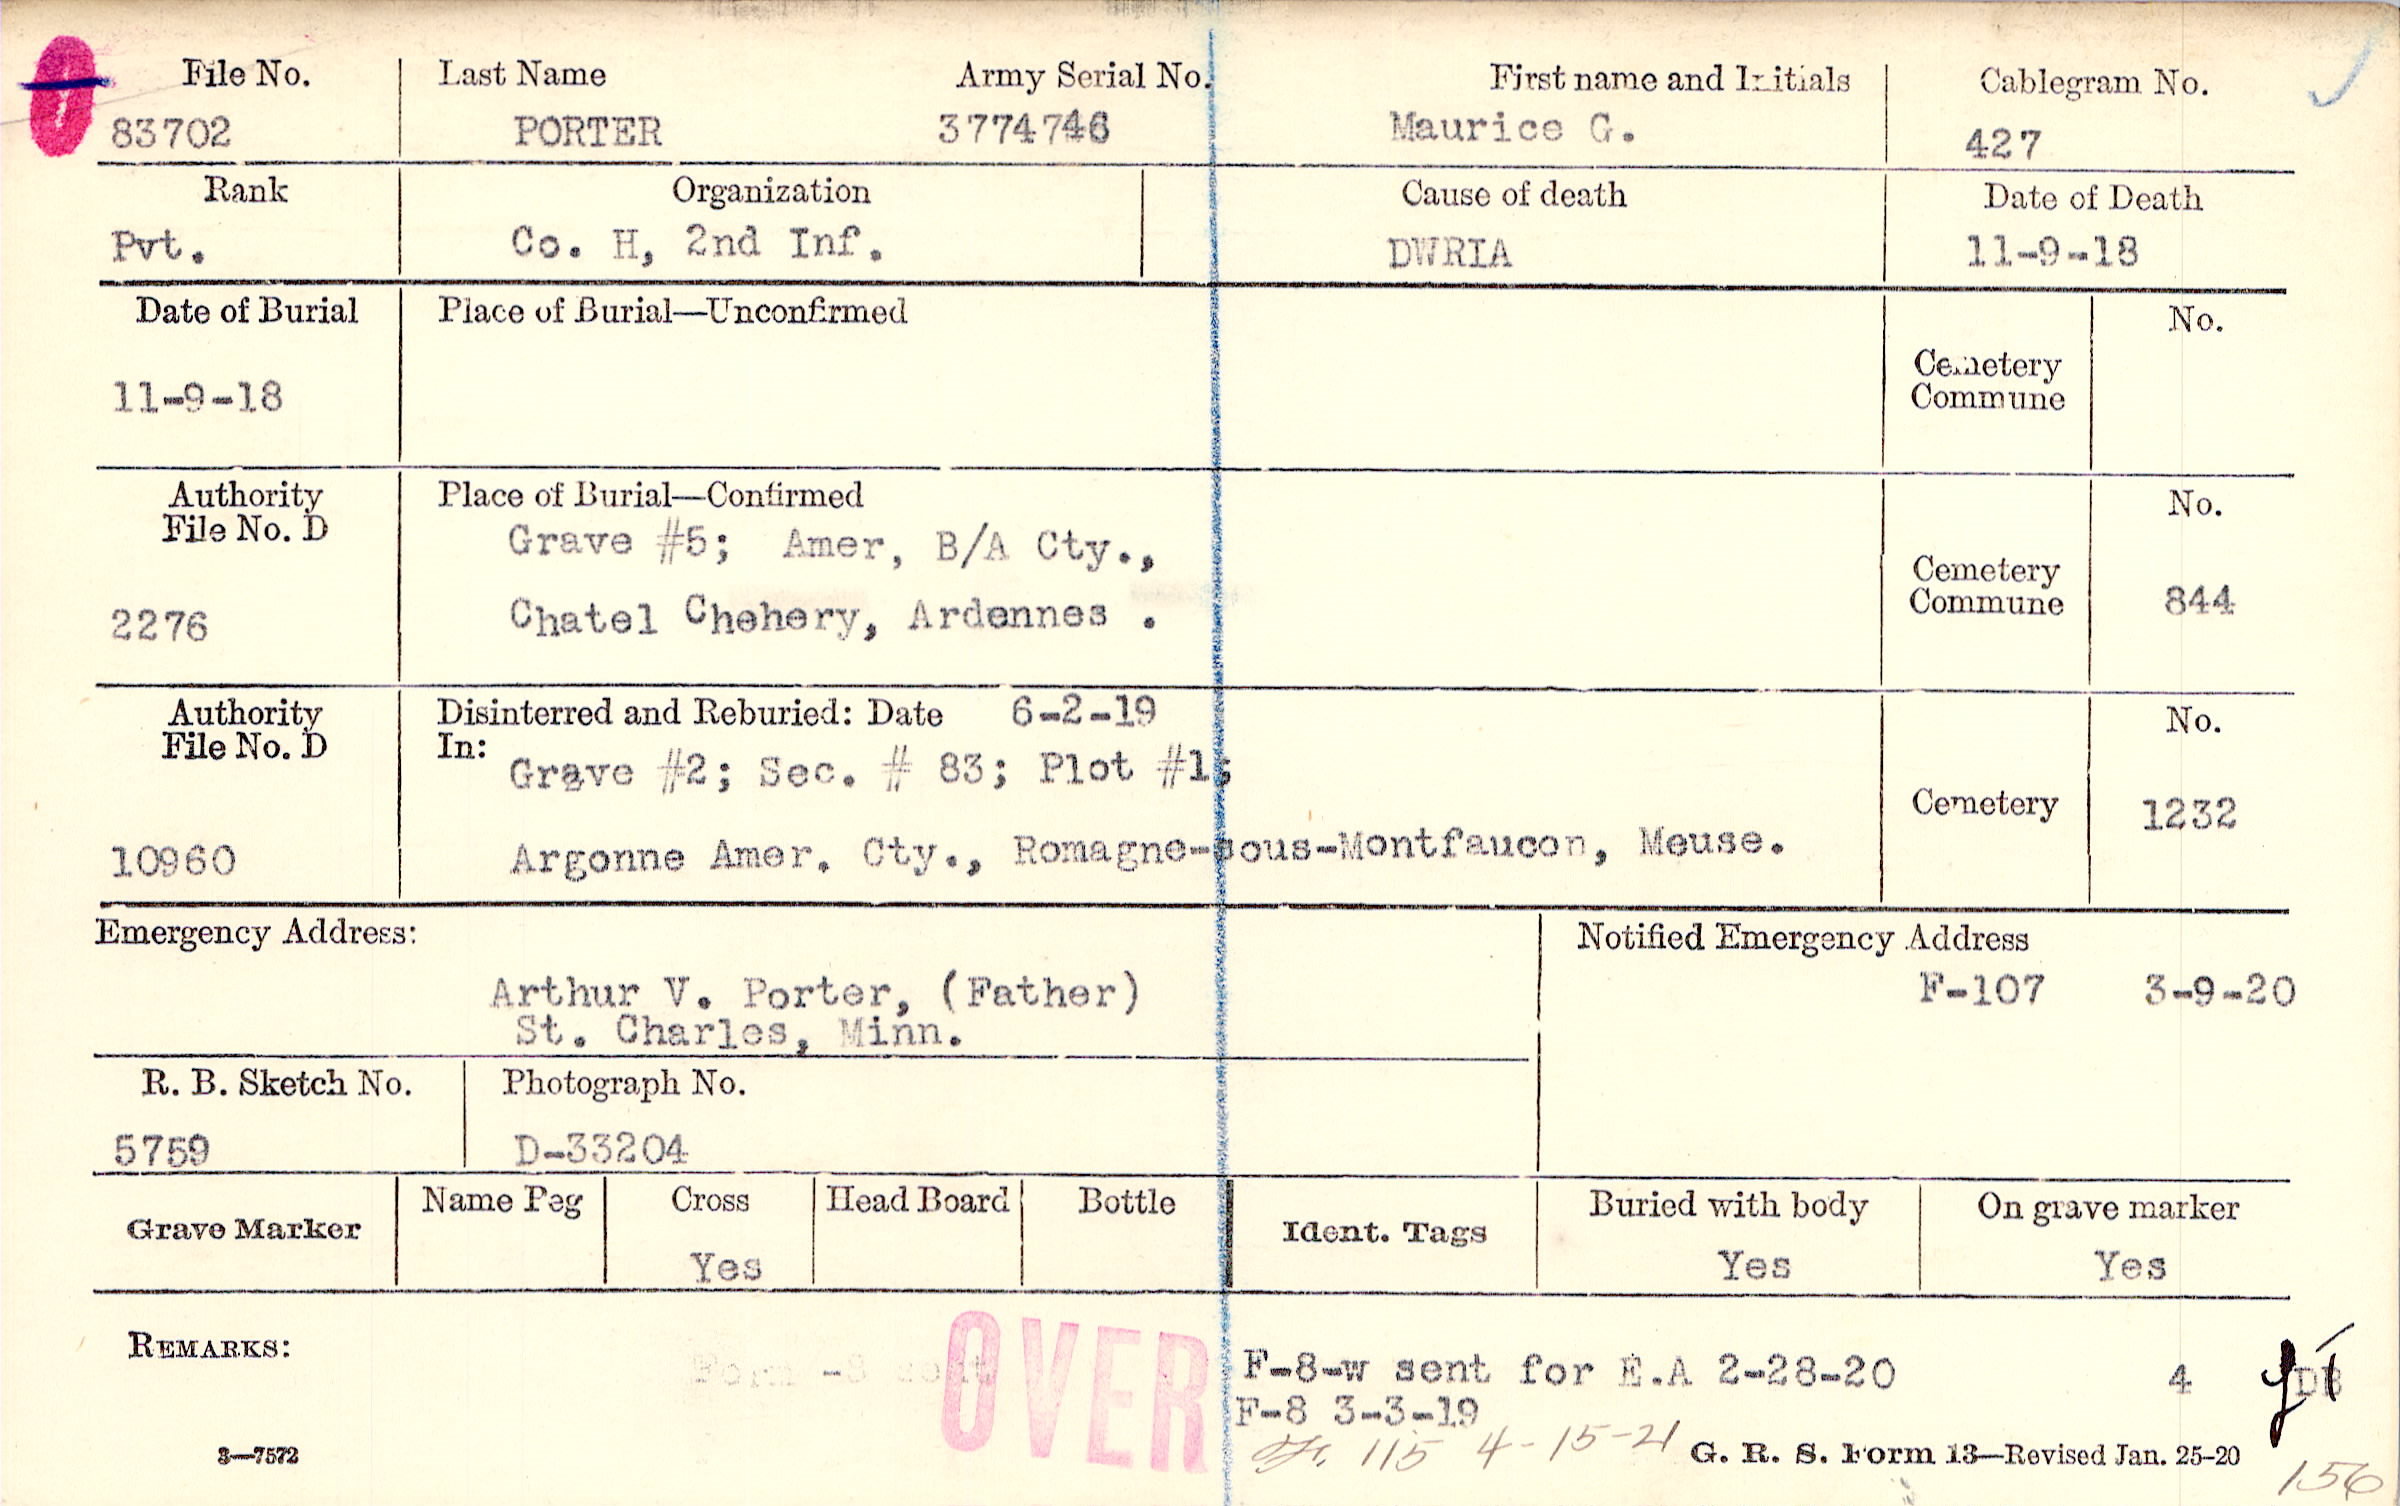 File No. Last Name Army Serial No. First name and Initials Cablegram No.
83702 PORTER 3774746 Maurice G. 427
Rank Organization Cause of death Date of Death
Pvt. Co. H, 2nd Inf. DWRIA 11-9-18
Date of Burial Place of Burial—Unconfirmed No.
11-9-18 Cemetery
Commune
Authority Place of Burial—Confirmed No.
File No. D Grave #5; Amer, B/A Cty.,
Cemetery
2276 Chatel Chehery, Ardennes . Commune 844
Authority Disinterred and Reburied: Date 6-2-19 No.
File No. D In: Grave #2; Sec. # 83; Plot #1;
Cemetery 1232
10960 Argonne Amer. Cty., Romagne-sous-Montfaucon, Meuse.
Emergency Address: Notified Emergency Address
Arthur V. Porter, (Father) F-107 3-9-20
St. Charles, Minn.
R. B. Sketch No. Photograph No.
5759 D-33204
Grave Marker Name Peg Cross Head Board Bottle Ident. Tags Buried with body On grave marker
Yes Yes Yes
REMARKS: Form -8 sent OVER F-8-w sent for E.A 2-28-20 4
F-8 3-3-19
115 4-15-21
3—7572 G. R. S. Form 13—Revised Jan. 25-20
156